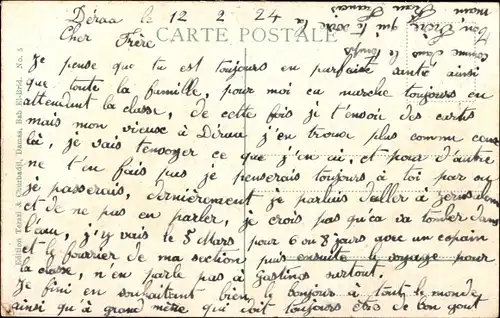 Déraa le 12 2 24
CARTE POSTALE
Cher Frère
je pense que tu est toujours en parfaite santé ainsi
que toute la famille, pour moi ça marche toujours en
attendant la classe, de cette fois je t'envoi des cartes
mais mon vieux à Déraa j'en trouve plus comme ceux
là, je vais t'envoyer ce que j'en ai, et pour d'autre
ne t'en fais pas je penserais toujours à toi par ou
je passerais, dernièrement je parlais d'aller à Jerusalem
et de ne pas en parler, je crois pas qu'ça va tomber dans
l'eau, j'y vais le 5 Mars pour 6 ou 8 jours avec un copain
et le fourrier de ma section puis ensuite le voyage pour
la classe, n'en parle pas à Gastines surtout.
je fini en souhaitant bien le bonjour à tout le monde
ainsi qu'à grand mère qui doit toujours être de bon gout
comme dans le temps
ton Frère qui te serre la
Edition Terzxi & Chürbadji, Damas, Bab El-Brid. No. 5